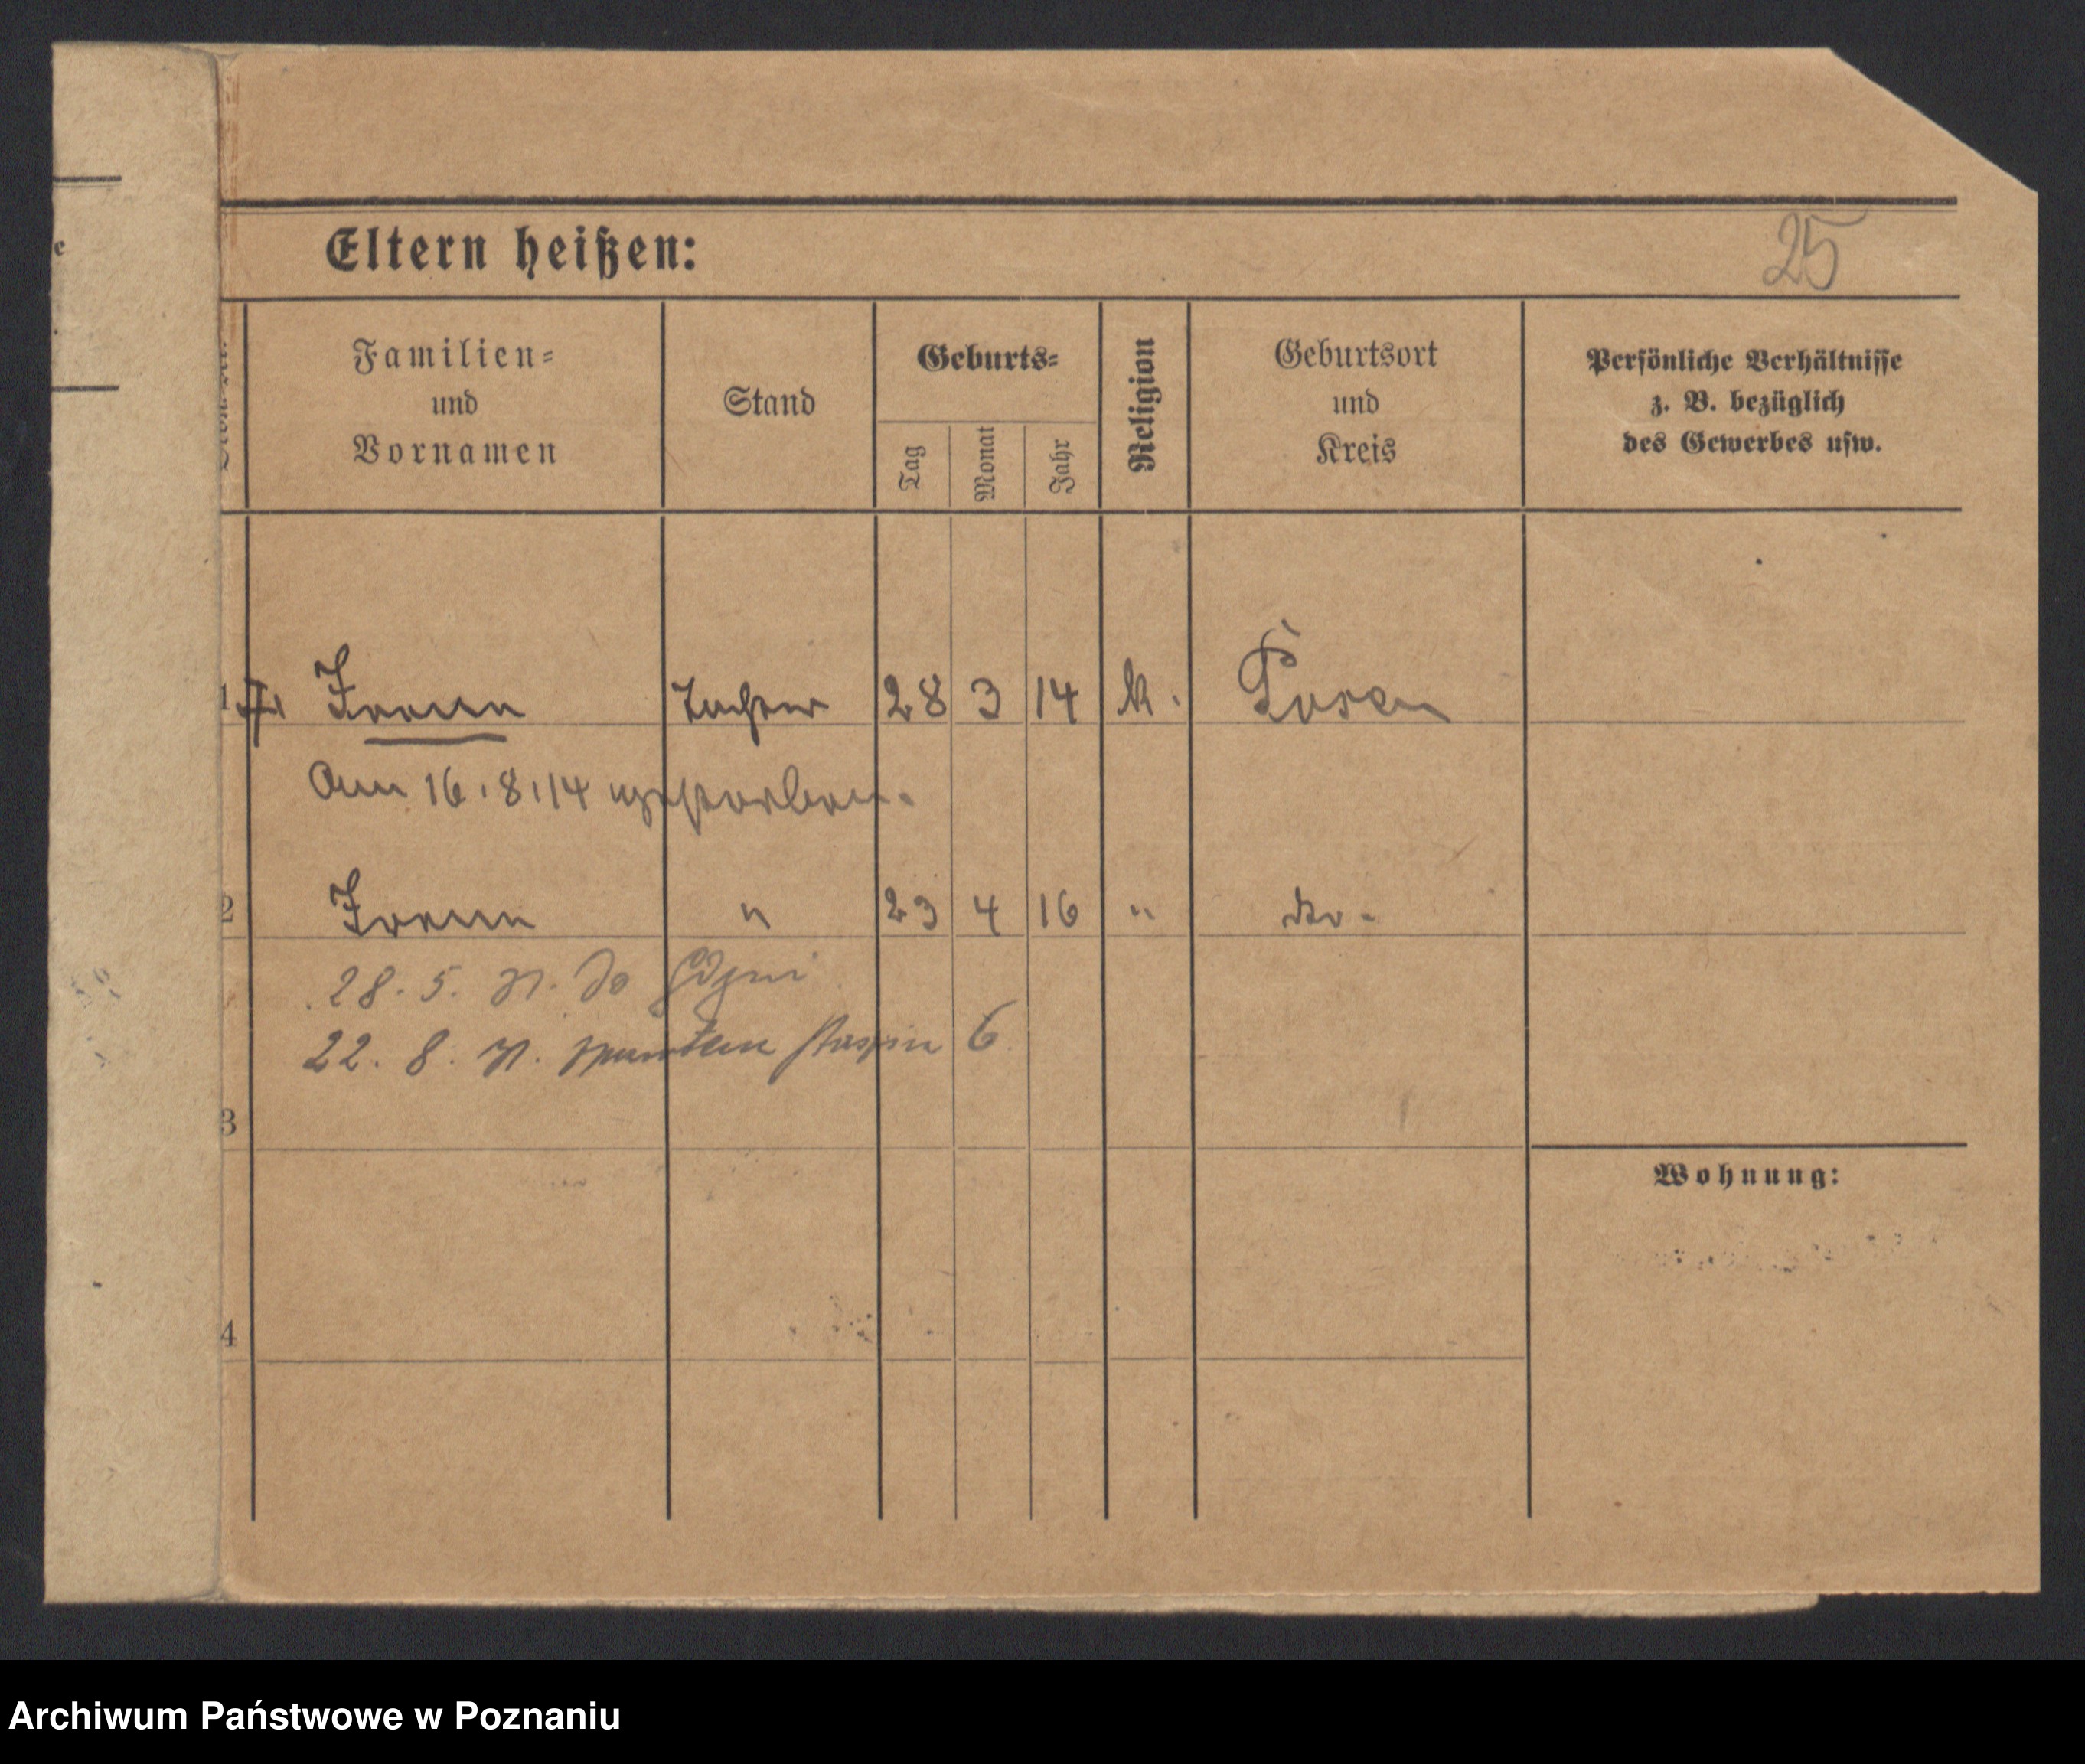 e
25
Eltern heißen:
Familien-
und
Vornamen
Stand
Geburts-
Tag
Monat
Jahr
Religion
Geburtsort
und
Kreis
Persönliche Verhältnisse
z. B. bezüglich
des Gewerbes usw.
1 Irene Tochter 28 3 14 k. Posen
Am 16.8.14 gestorben.
2 Irene " 23 4 16 " do.
28. 5. 31. do Gdyni
22. 8. 31. 6
3
Wohnung:
4
Archiwum Państwowe w Poznaniu